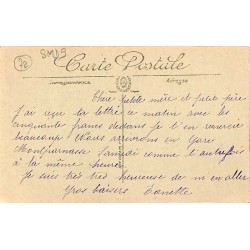 SM19
72
Carte Postale
CORRESPONDANCE
ADRESSE
Chère petite mère et petit père
J'ai reçu ta lettre ce matin avec les
cinquante francs dedans je t'en remercie
beaucoup Nous arrivons en Gare
Montparnasse Samedi comme l'autrefois
à la même heure
Je suis très très heureuse de m'en aller
Gros baisers